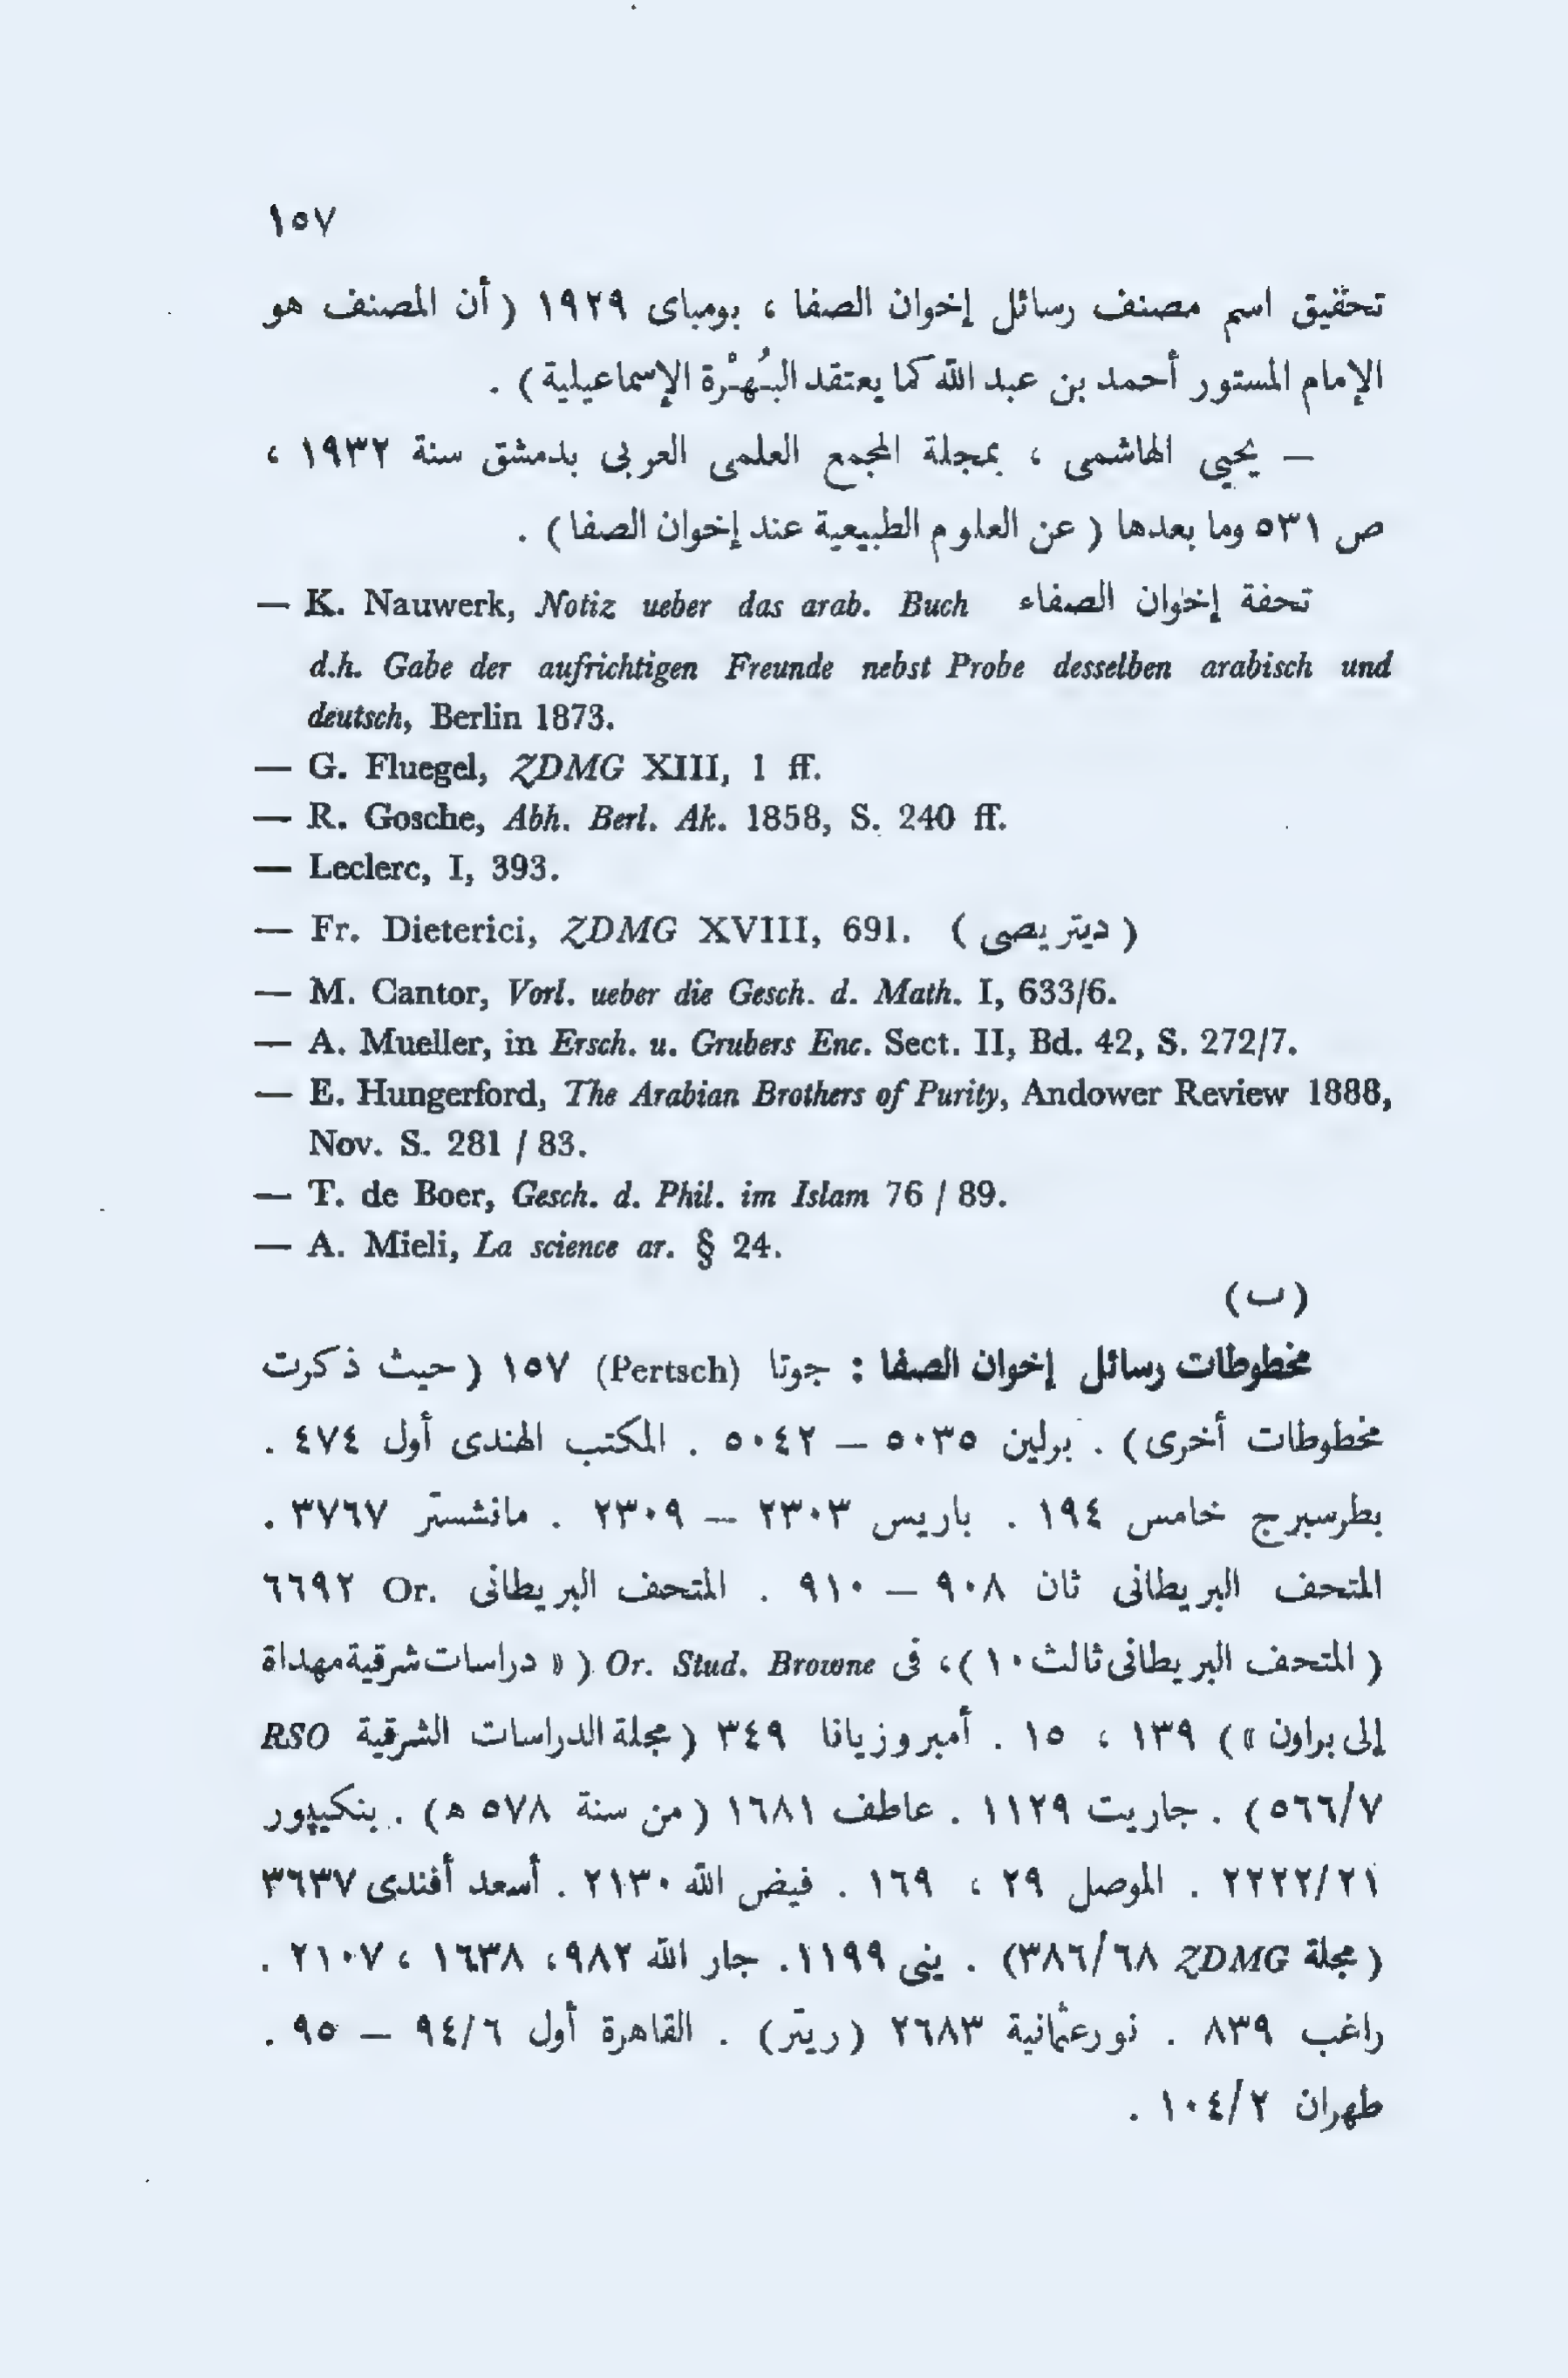 ١٥٧
تحقيق اسم مصنف رسائل إخوان الصفا ، بومباى ١٩٢٩ ( أن المصنف هو
الإمام المستور أحمد بن عبد الله كما يعتقد البُهْرة الإسماعيلية ) .
— يحيى الهاشمى ، بمجلة المجمع العلمى العربى بدمشق سنة ١٩٣٢ ،
ص ٥٣١ وما بعدها ( عن العلوم الطبيعية عند إخوان الصفا ) .
— K. Nauwerk, Notiz ueber das arab. Buch تحفة إخوان الصفاء
d.h. Gabe der aufrichtigen Freunde nebst Probe desselben arabisch und
deutsch, Berlin 1873.
— G. Fluegel, ZDMG XIII, 1 ff.
— R. Gosche, Abh. Berl. Ak. 1858, S. 240 ff.
— Leclerc, I, 393.
— Fr. Dieterici, ZDMG XVIII, 691. ( ديتريصى )
— M. Cantor, Vorl. ueber die Gesch. d. Math. I, 633/6.
— A. Mueller, in Ersch. u. Grubers Enc. Sect. II, Bd. 42, S. 272/7.
— E. Hungerford, The Arabian Brothers of Purity, Andower Review 1888,
Nov. S. 281 / 83.
— T. de Boer, Gesch. d. Phil. im Islam 76 / 89.
— A. Mieli, La science ar. § 24.
(ب)
مخطوطات رسائل إخوان الصفا : جوتا (Pertsch) ١٥٧ ( حيث ذكرت
مخطوطات أخرى ) . برلين ٥٠٣٥ — ٥٠٤٢ . المكتب الهندى أول ٤٧٤ .
بطرسبرج خامس ١٩٤ . باريس ٢٣٠٣ — ٢٣٠٩ . مانشستر ٣٧٦٧ .
المتحف البريطانى ثان ٩٠٨ — ٩١٠ . المتحف البريطانى Or. ٦٦٩٢
( المتحف البريطانى ثالث ١٠ )، فى Or. Stud. Browne ( « دراسات شرقية مهداة
إلى براون » ) ١٣٩ ، ١٥ . أمبروزيانا ٣٤٩ ( مجلة الدراسات الشرقية RSO
٥٦٦/٧ ) . جاريت ١١٢٩ . عاطف ١٦٨١ ( من سنة ٥٧٨ ه ) . بنكيپور
٢٢٢٢/٢١ . الموصل ٢٩ ، ١٦٩ . فيض الله ٢١٣٠ . أسعد أفندى ٣٦٣٧
( مجلة ZDMG ٣٨٦/٦٨ ) . ينى ١١٩٩ . جار الله ٩٨٢، ١٦٣٨ ، ٢١٠٧ .
راغب ٨٣٩ . نورعثمانية ٢٦٨٣ ( ريتر ) . القاهرة أول ٩٤/٦ — ٩٥ .
طهران ١٠٤/٢ .